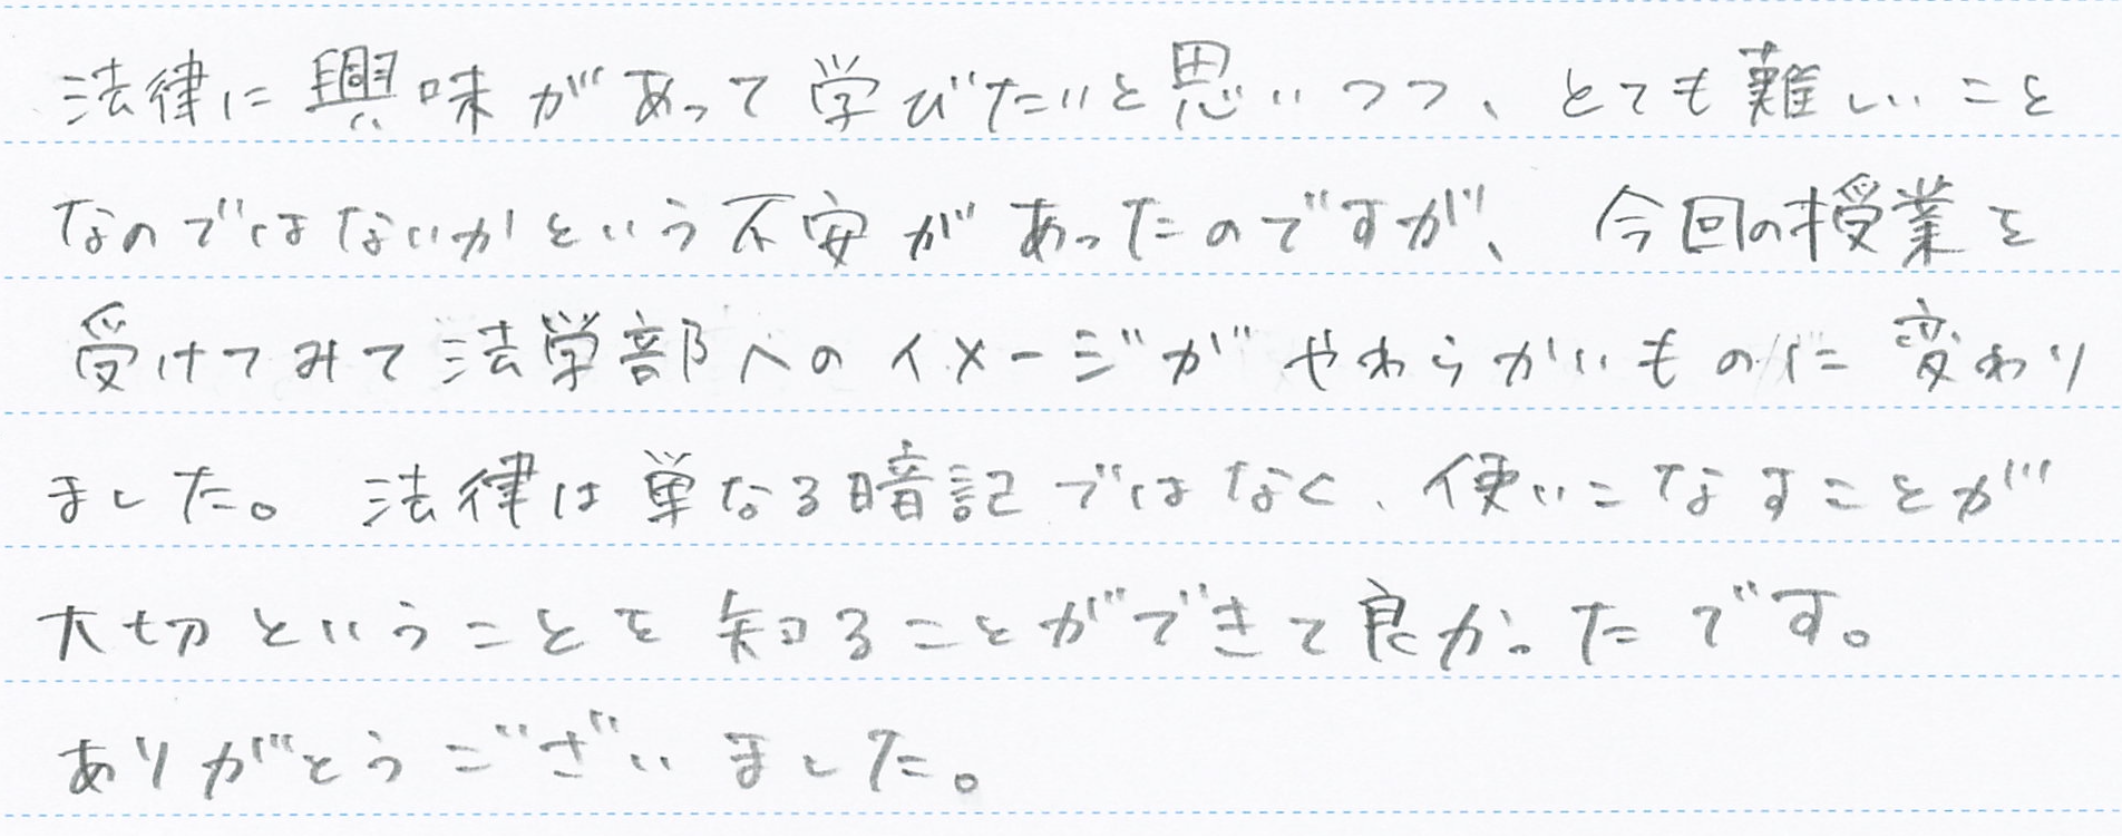 法律に興味があって学びたいと思いつつ、とても難しいこと
なのではないかという不安があったのですが、今回の授業を
受けてみて法学部へのイメージがやわらかいものに変わり
ました。法律は単なる暗記ではなく、使いこなすことが
大切ということを知ることができて良かったです。
ありがとうございました。